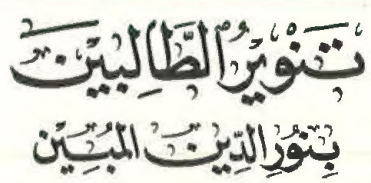 تَنْوِيْرُ الطَّالِبِيْنَ
بِنُوْرِ الدِّيْنِ الْمُبِيْنِ